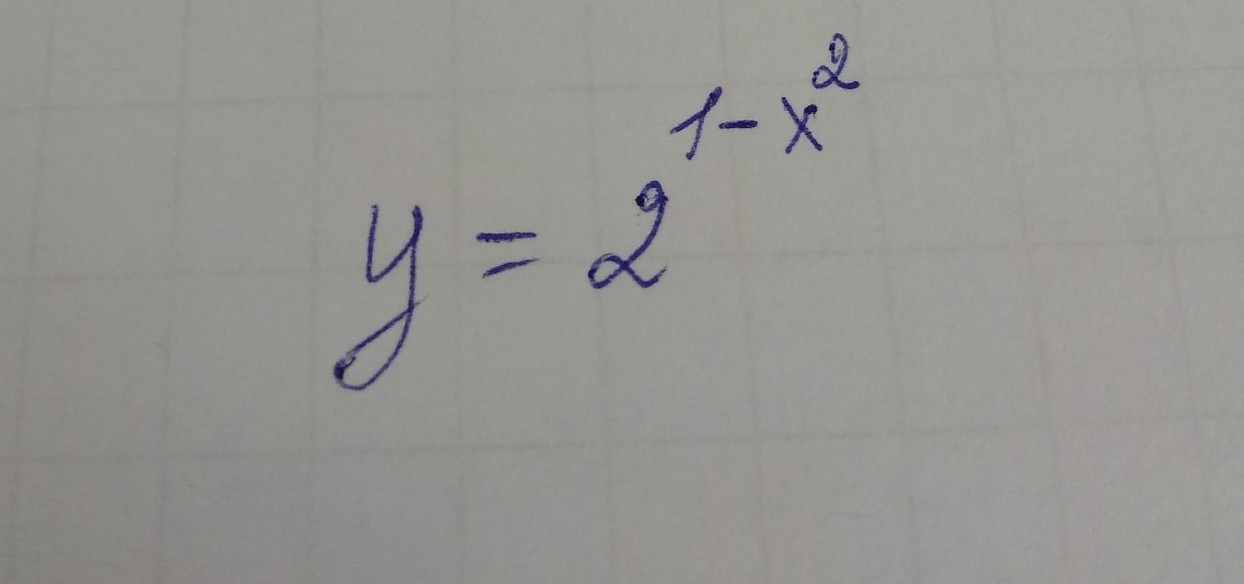 y = 2^{1-x^2}